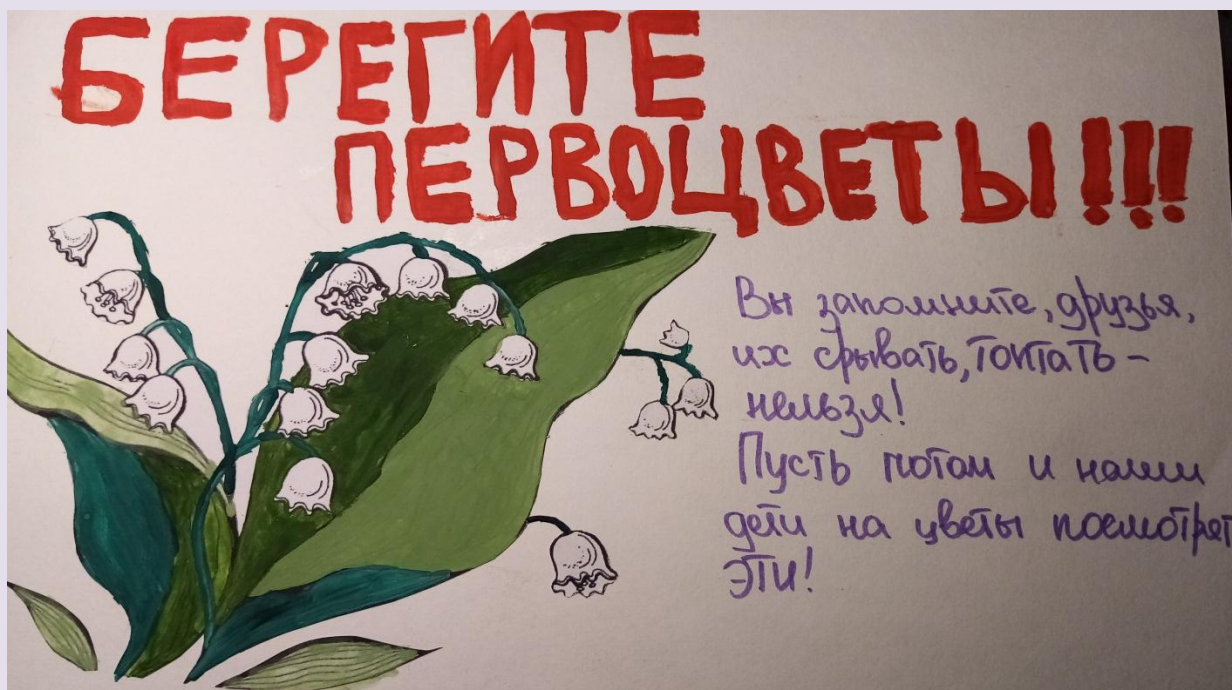 БЕРЕГИТЕ
ПЕРВОЦВЕТЫ!!!
Вы запомните, друзья,
их срывать, топтать –
нельзя!
Пусть потом и наши
дети на цветы посмотрят
эти!